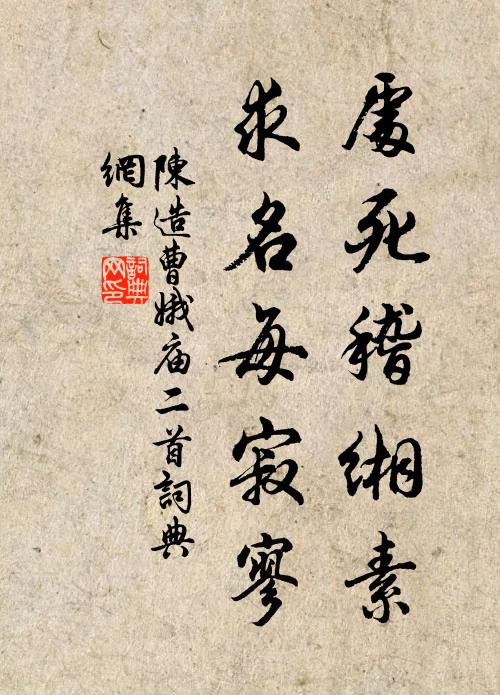 處死稽緗素
求名每寂寥
陳造曹娥庙二首詞典
網集
詞典网印